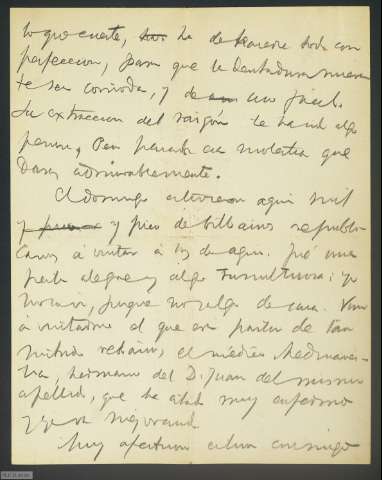 lo que cueste, ha de hacerse todo con
perfeccion, para que la dentadura nueva
te sea comoda, y de uso facil.
La extraccion del raigón te hará algo
penar, pero pasada esa molestia que
darás admirablemente.
El domingo estuvieron aqui mil
y pico de bilbainos republi
canos á visitar á los de aqui. Fué una
fiesta alegre y algo tumultuosa: yo
no la vi, porque no salgo de casa. Vino
á visitarme el que era pastor de tan
nutrido rebaño, el médico Madinavei
tia, hermano del D. Juan del mismo
apellido, que ha estado muy enfermo
y ya va mejorando.
Muy afectuoso estuvo conmigo